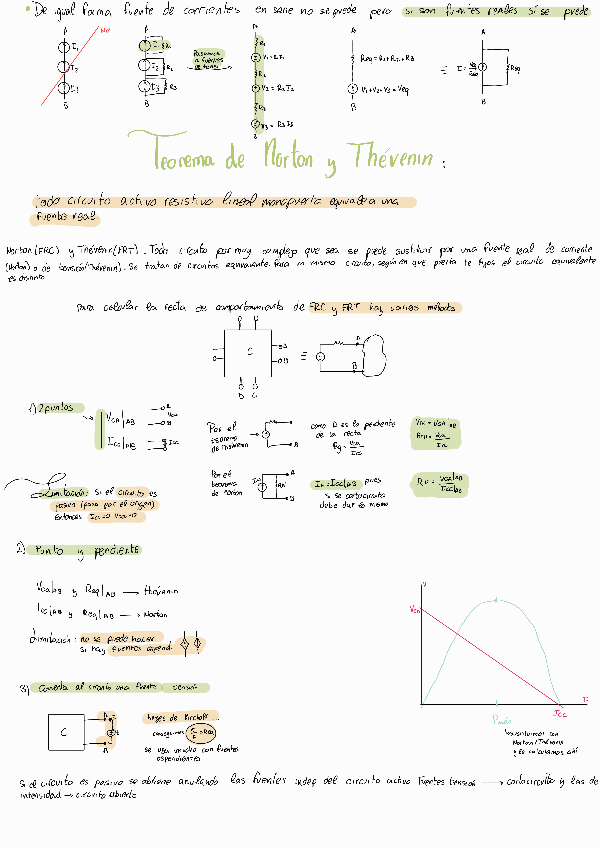 • De igual forma fuente de corrientes en serie no se puede pero si son fuentes reales sí se puede
No
A
I1
I2
I3
B
A
I1 R1
R2
I3 R3
B
Pasamos a fuentes de tensión
A
R1
V1 = R1 I1
R2
V2 = R2 I2
R3
V3 = R3 I3
B
A
Req = R1 + R2 + R3
V1 + V2 + V3 = Veq
B
≡
A
I = Veq/Req
Req
B
Teorema de Norton y Thévenin:
Todo circuito activo resistivo lineal monopuerta equivale a una
fuente real
Norton (FRC) y Thévenin (FRT). Todo circuito por muy complejo que sea se puede sustituir por una fuente real de corriente
(Norton) o de tensión (Thévenin). Se tratan de circuitos equivalente. Para un mismo circuito, según en que puerta te fijes el circuito equivalente
es distinto
Para calcular la recta de comportamiento de FRC y FRT hay varios métodos
C
A
B
D C
≡
A
B
1) 2 puntos
Vca|AB
Icc|AB
A
Vca
B
Icc
Por el teorema de Thévenin
A
B
como R es la pendiente
de la recta
Rg = Vca/Icc
VTH = Vca AB
RTH = Vca/Icc
Por el teorema de Norton
IN
RN
A
B
IN = Icc|AB pues
si se cortocircuita
debe dar lo mismo
RN = Vca|AB / Icc|AB
Limitación: Si el circuito es
pasivo (pasa por el origen)
entonces Icc=0 Vca=0
2) Punto y pendiente
Vca|AB y Req|AB → thévenin
Icc|AB y Req|AB → Norton
Limitación: no se puede hacer
si hay fuentes depend.
V
Vca
I
Icc
Pmáx
sustituimos con
Norton/Thévenin
y lo calculamos ahí
3) Conecta al circuito una fuente
C
A
B
leyes de Kirchoff
conseguimos = Req
se usa mucho con fuentes
dependientes
Si el circuito es pasivo se obtiene anulando las fuentes indep del circuito activo Fuentes tensión → cortocircuito y las de
intensidad → circuito abierto